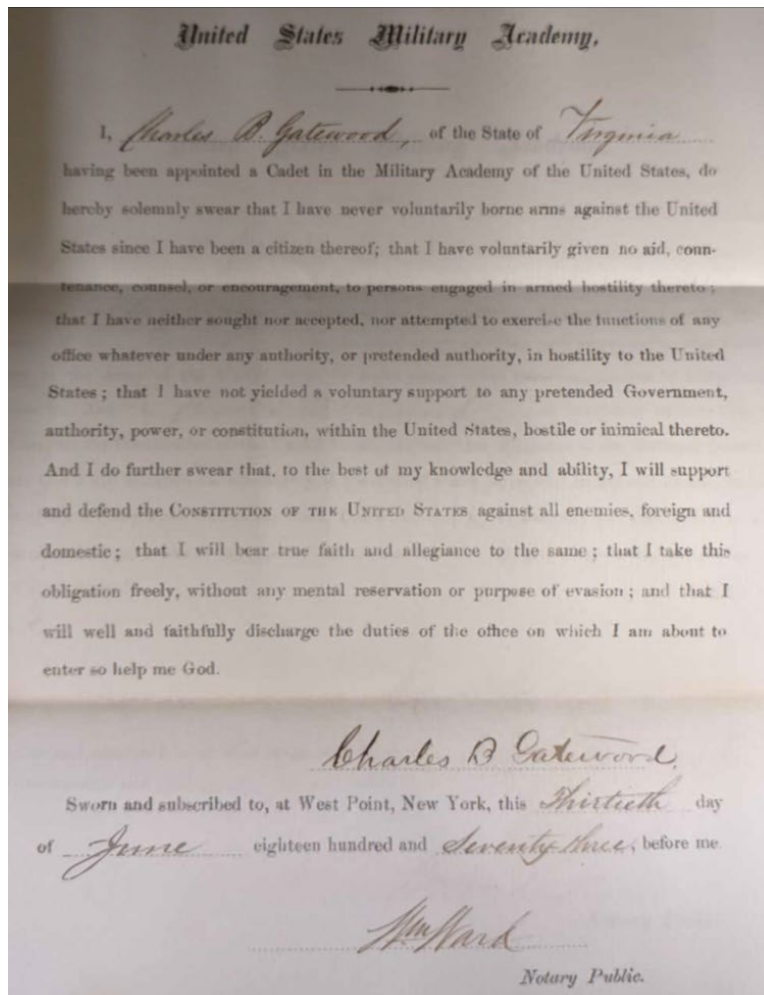 United States Military Academy.
I, Charles B. Gatewood, of the State of Virginia
having been appointed a Cadet in the Military Academy of the United States, do
hereby solemnly swear that I have never voluntarily borne arms against the United
States since I have been a citizen thereof; that I have voluntarily given no aid, coun-
tenance, counsel, or encouragement, to persons engaged in armed hostility thereto;
that I have neither sought nor accepted, nor attempted to exercise the functions of any
office whatever under any authority, or pretended authority, in hostility to the United
States; that I have not yielded a voluntary support to any pretended Government,
authority, power, or constitution, within the United States, hostile or inimical thereto.
And I do further swear that, to the best of my knowledge and ability, I will support
and defend the CONSTITUTION OF THE UNITED STATES against all enemies, foreign and
domestic; that I will bear true faith and allegiance to the same; that I take this
obligation freely, without any mental reservation or purpose of evasion; and that I
will well and faithfully discharge the duties of the office on which I am about to
enter so help me God.
Charles B Gatewood.
Sworn and subscribed to, at West Point, New York, this Thirtieth day
of June eighteen hundred and Seventy three, before me
Wm Ward
Notary Public.